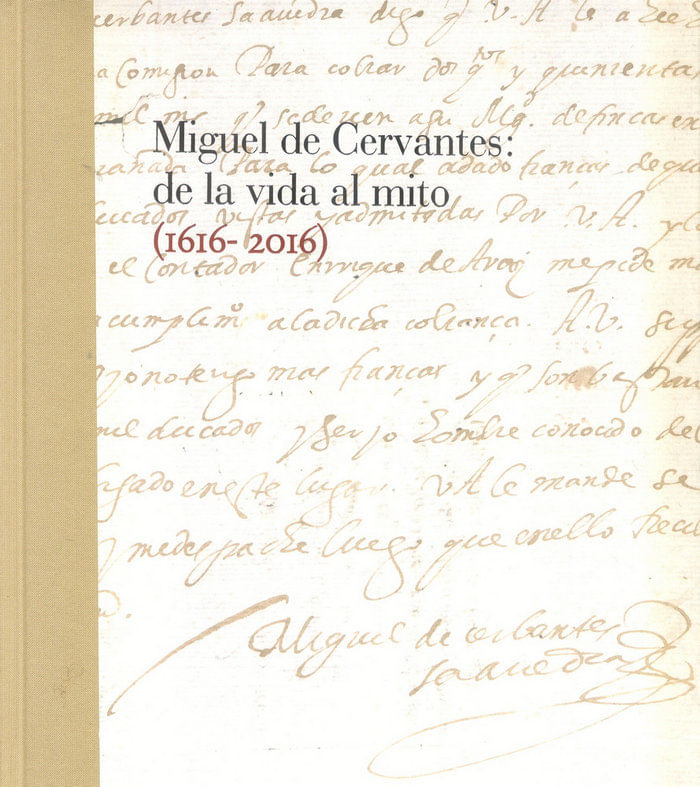 cerbantes Saavedra digo q̃ V. A. le a hech
a Comision Para cobrar dos qtos y quinienta
mil mrs q̃ se deven a su Mgd. de fincas en
Granada Para lo qual a dado fianças de qua
ducados vistas y admitidas Por V. A. y
el Contador Enrrique de Araiz me pide m
cumplimo a la dicha cobrança. A.V.
yo no tengo mas fianças y q̃ son bastan
mil ducados y Ser yo hombre conocido de
casado en este lugar. V A le mande se
y me despache luego que en ello
Miguel de Cervantes:
de la vida al mito
(1616- 2016)
Miguel de cerbantes
saavedra